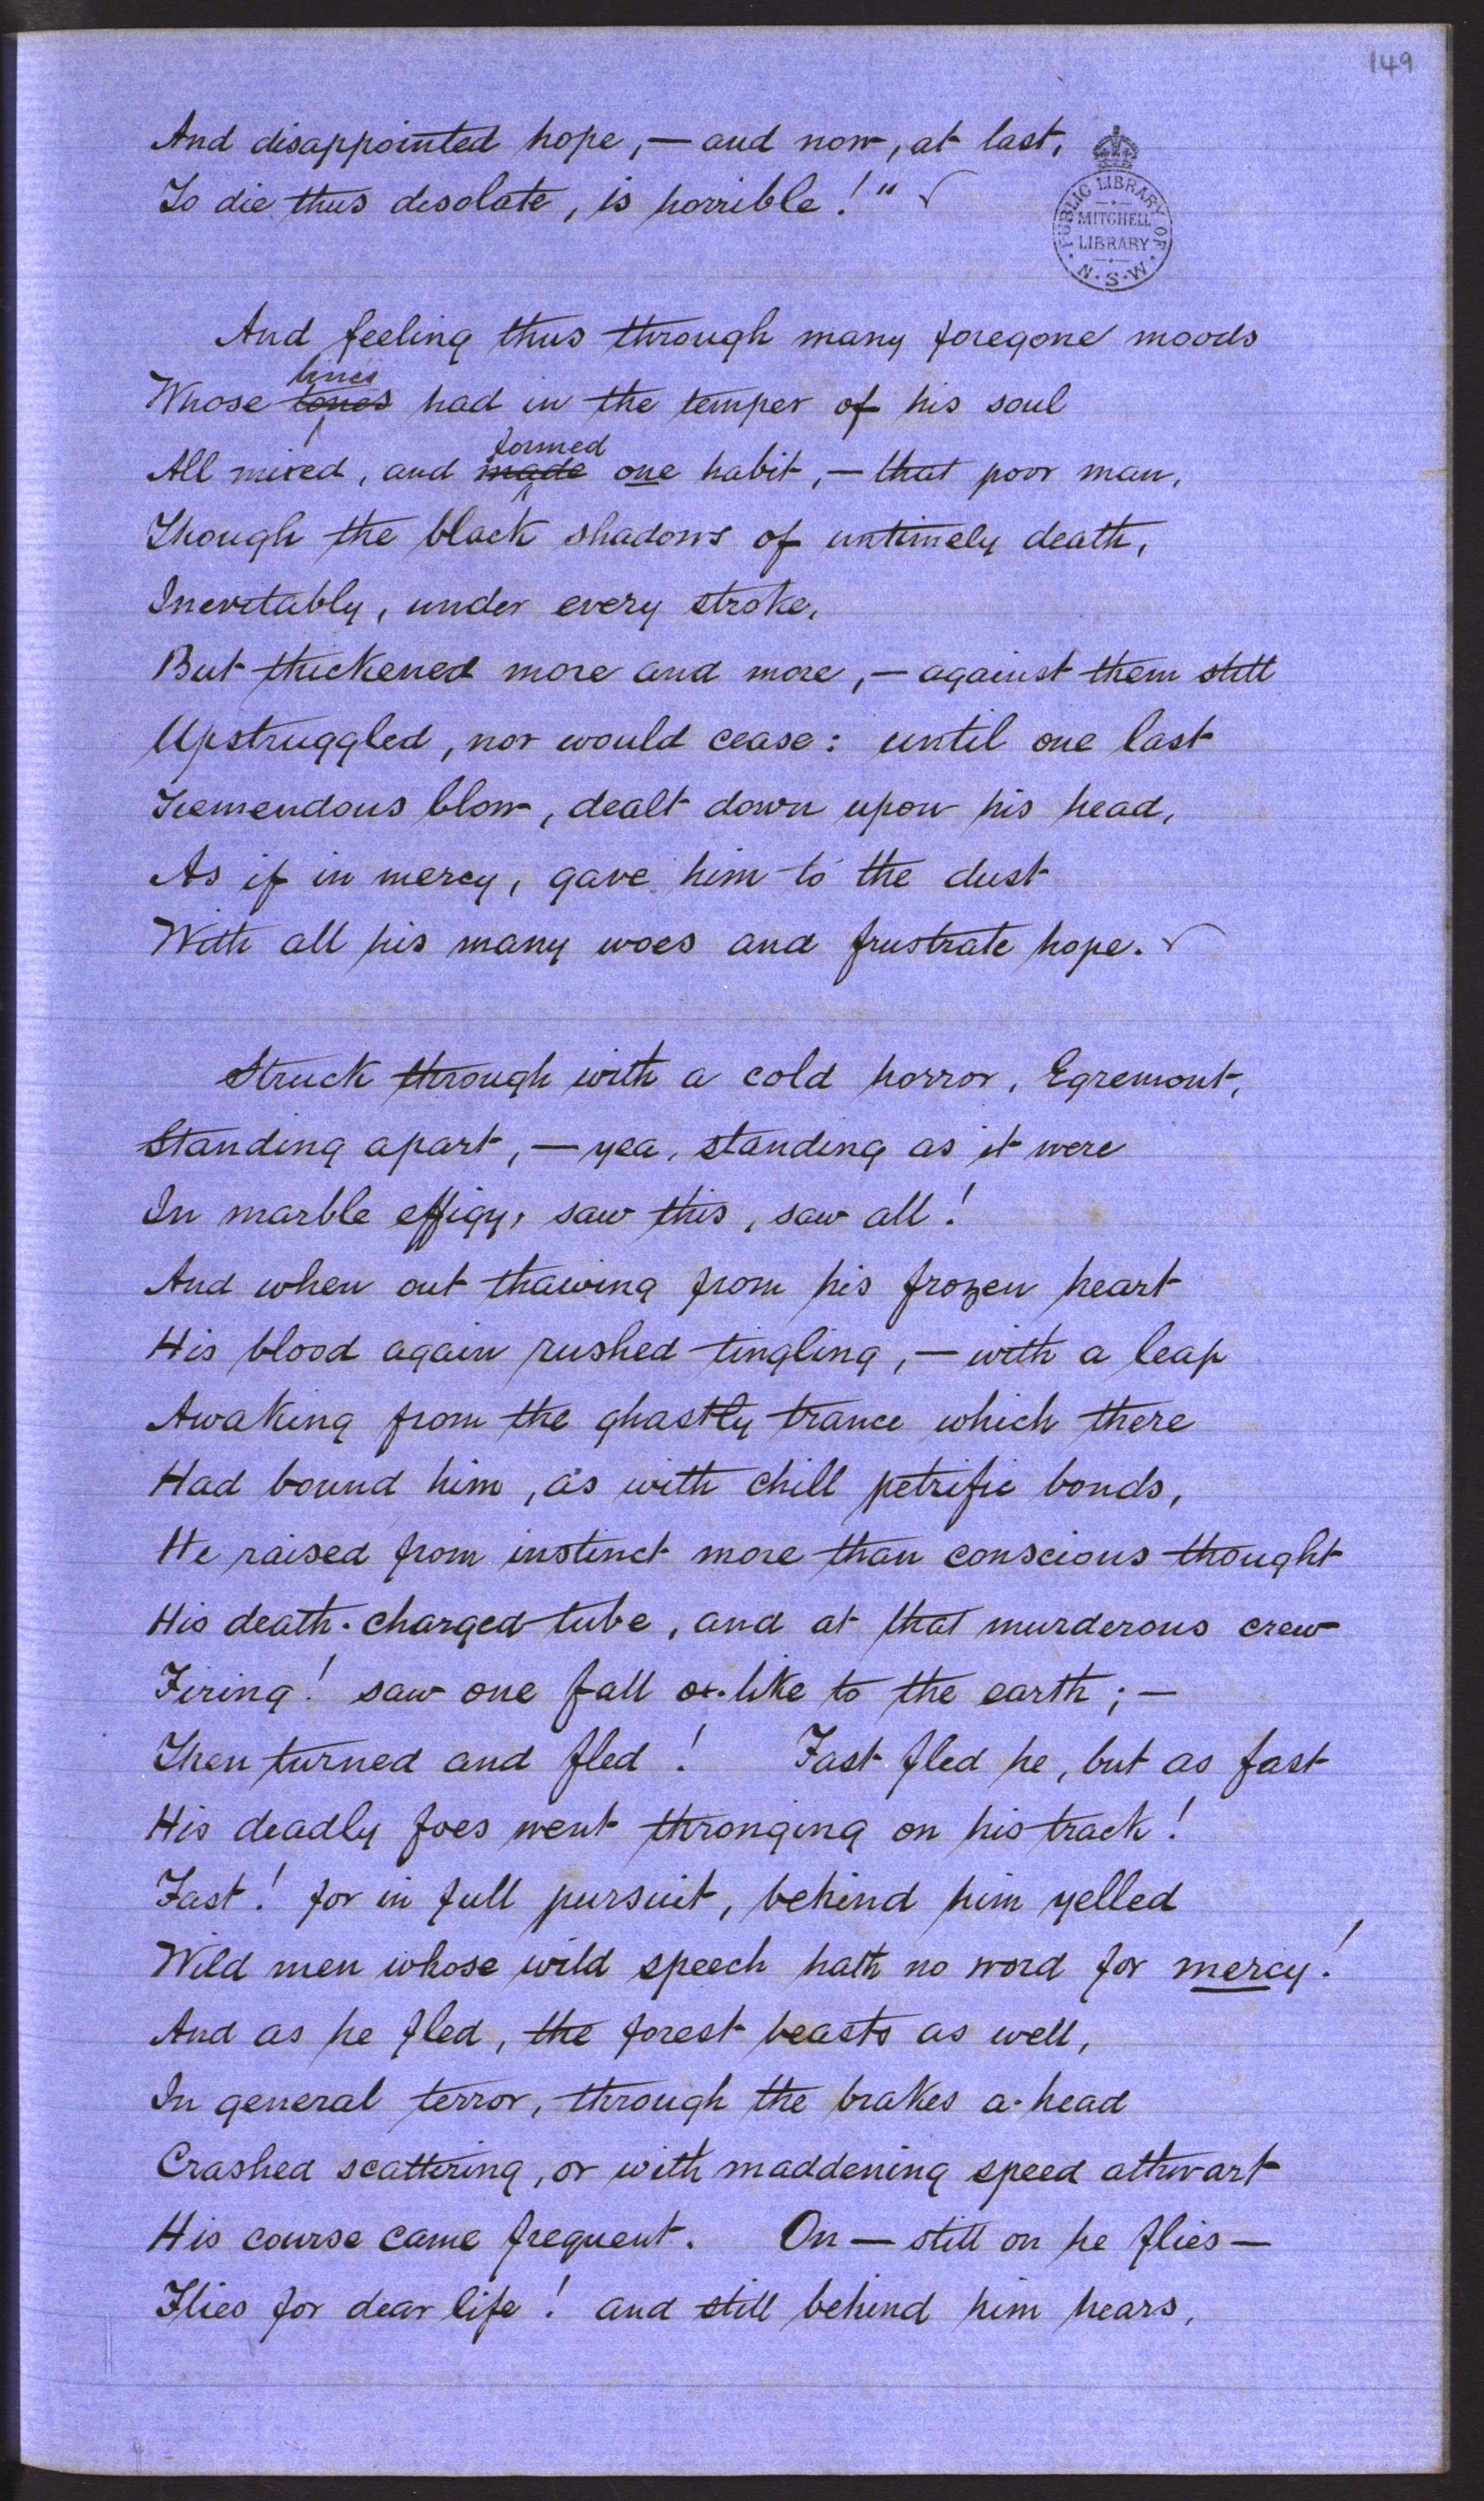 149
And disappointed hope, — and now, at last,
To die thus desolate, is horrible!"
PUBLIC LIBRARY OF N.S.W.
MITCHELL LIBRARY
And feeling thus through many foregone moods
lines
Whose tones had in the temper of his soul
formed
All mixed, and made one habit, — that poor man,
Though the black shadows of untimely death,
Inevitably, under every stroke,
But thickened more and more, — against them still
Upstruggled, nor would cease: until one last
Tremendous blow, dealt down upon his head,
As if in mercy, gave him to the dust
With all his many woes and frustrate hope.
Struck through with a cold horror, Egremont,
Standing apart, — yea, standing as it were
In marble effigy, saw this, saw all!
And when out thawing from his frozen heart
His blood again rushed tingling, — with a leap
Awaking from the ghastly trance which there
Had bound him, as with chill petrific bonds,
He raised from instinct more than conscious thought
His death-charged tube, and at that murderous crew
Firing! saw one fall ox-like to the earth; —
Then turned and fled! Fast fled he, but as fast
His deadly foes went thronging on his track!
Fast! for in full pursuit, behind him yelled
Wild men whose wild speech hath no word for mercy!
And as he fled, the forest beasts as well,
In general terror, through the brakes a-head
Crashed scattering, or with maddening speed athwart
His course came frequent. On — still on he flies —
Flies for dear life! and still behind him hears,